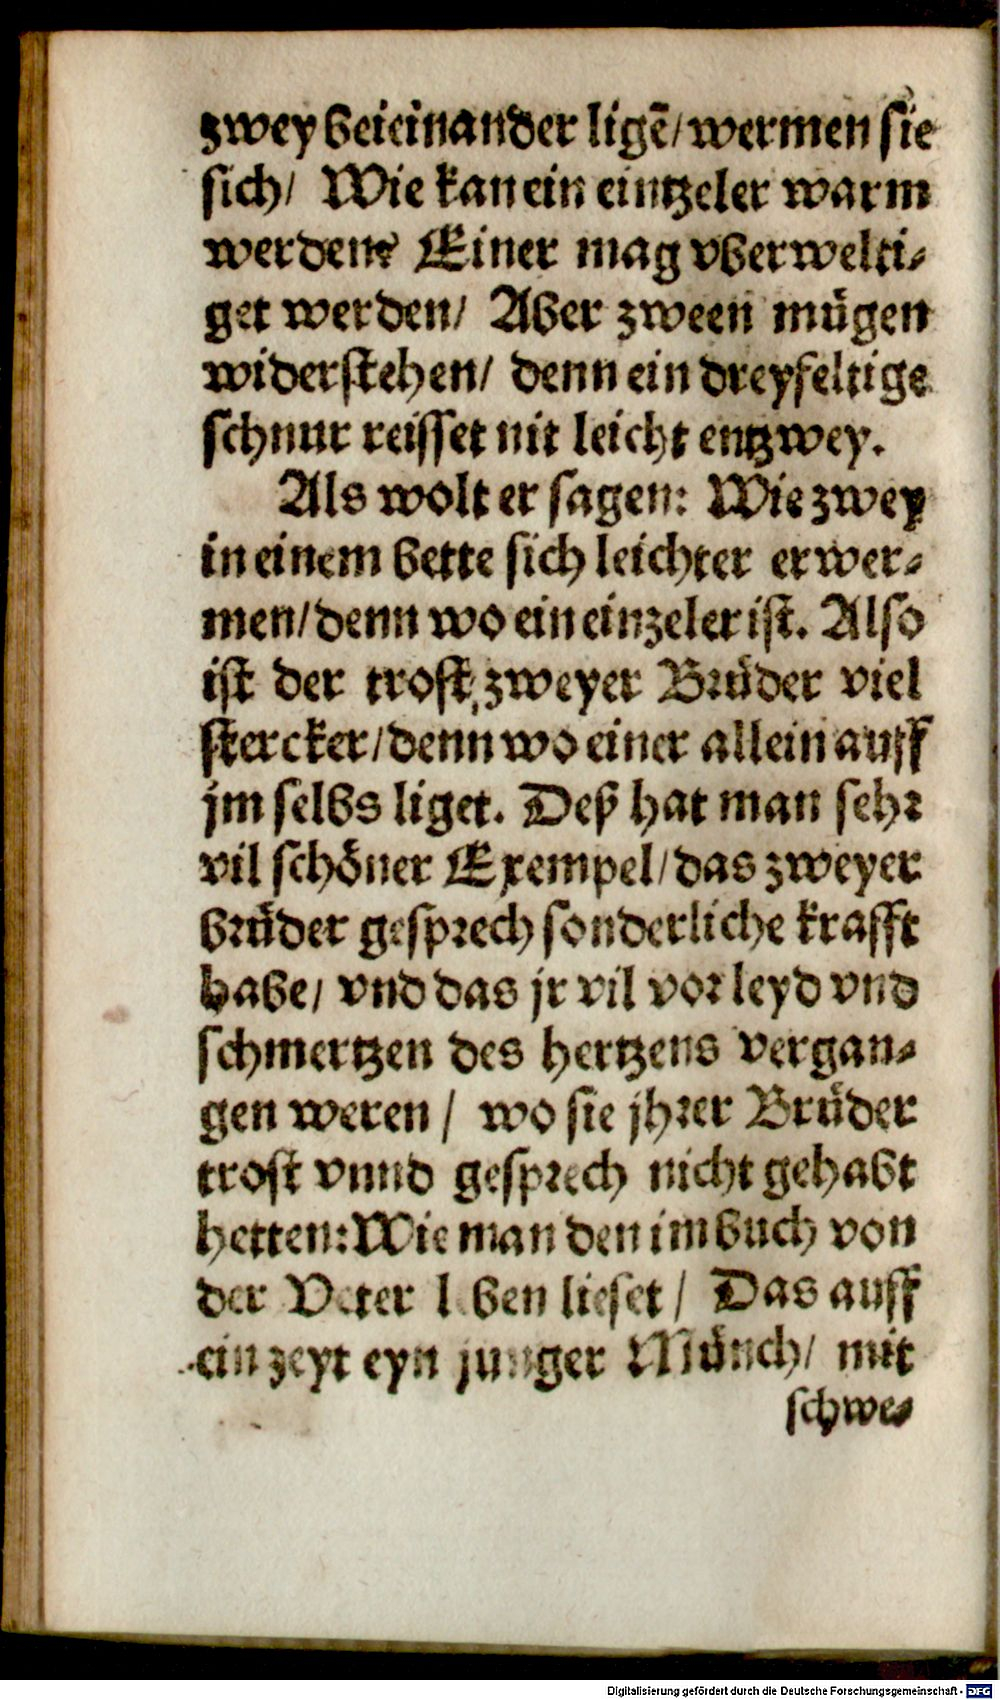 zwey beieinander ligē/ wermen sie
sich/ Wie kan ein eintzeler warm
werden? Einer mag vberwelti-
get werden/ Aber zween mügen
widerstehen/ denn ein dreyfeltige
schnur reisset nit leicht entzwey.
Als wolt er sagen: Wie zwey
in einem bette sich leichter erwer-
men/ denn wo ein einzeler ist. Also
ist der trost zweyer Brüder viel
stercker/ denn wo einer allein auff
jm selbs liget. Deß hat man sehr
vil schöner Exempel/ das zweyer
brüder gesprech sonderliche krafft
habe/ vnd das jr vil vor leyd vnd
schmertzen des hertzens vergan-
gen weren/ wo sie jhrer Brüder
trost vnnd gesprech nicht gehabt
hetten: Wie man den im buch von
der Veter leben lieset/ Das auff
ein zeyt eyn junger Münch/ mit
schwe-
Digitalisierung gefördert durch die Deutsche Forschungsgemeinschaft - DFG